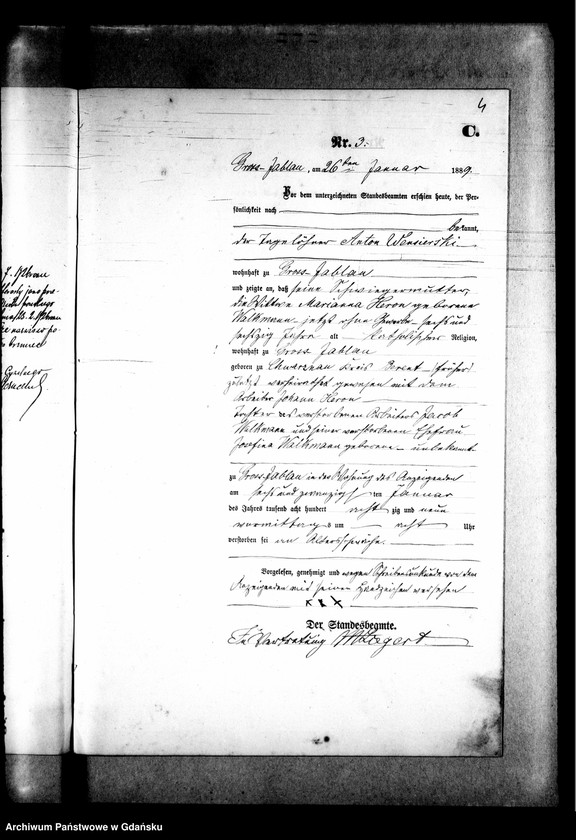 4
C.
Nr. 3.
Gross-Jablau, am 26ten Januar 1889.
Vor dem unterzeichneten Standesbeamten erschien heute, der Per-
sönlichkeit nach
bekannt,
der Tagelöhner Anton Wensierski
wohnhaft zu Gross Jablau
und zeigte an, daß seine Schwiegermutter,
die Wittwe Marianna Heron geborene
Walkmann jetzt ohne Gewerbe sechs und
sechszig Jahre alt katholischer Religion,
wohnhaft zu Gross Jablau
geboren zu Kreis Berent (früher)
zuletzt verheirathet gewesen mit dem
Arbeiter Johann Heron
Tochter des verstorbenen Arbeiters Jacob
Walkmann und seiner verstorbenen Ehefrau
Josefina Walkmann geborene unbekannt
zu Gross Jablau in der Wohnung des Anzeigenden
am sechs und zwanzigsten Januar
des Jahres tausend acht hundert acht zig und neun
vormittags um acht Uhr
verstorben sei an Altersschwäche.
Vorgelesen, genehmigt und wegen Schreibensunkunde von dem
Anzeigenden mit seinen Handzeichen versehen
x x x
Der Standesbeamte.
In Vertretung
Archiwum Państwowe w Gdańsku